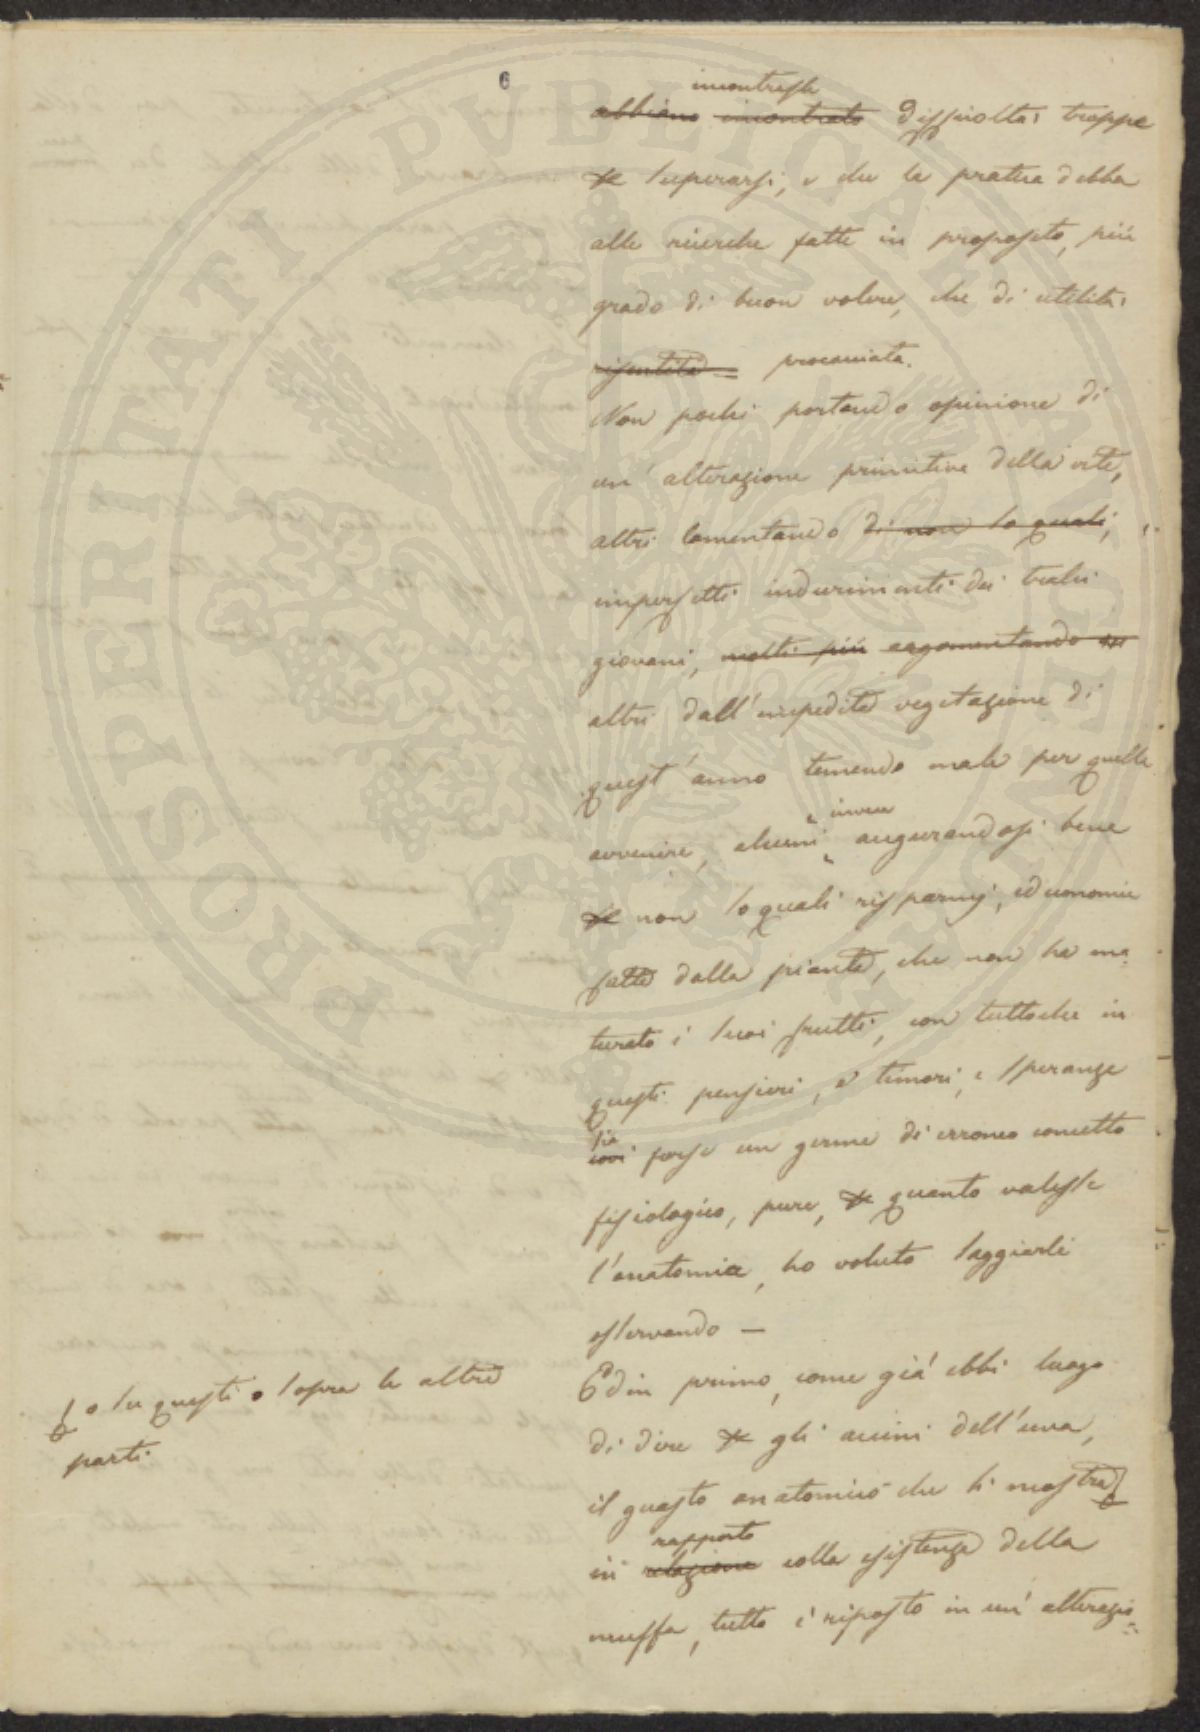 6
incontrasse
abbiano incontrato difficoltà troppe
a superarsi, e che la pratica debba
alle ricerche fatte in proposito, più
grado di buon volere, che di utilità
risentita = procacciata.
Non pochi portando opinione di
un' alterazione primitiva della vite,
altri lamentando di non so quali,
imperfetti indurimenti dei tralci
giovani, molti più argomentando
altri dall'impedita vegetazione di
quest'anno temendo male per quella
invece
avvenire, alcuni augurandosi bene
di non so quali risparmj, ed economie
fatte dalla pianta, che non ha ma-
turato i suoi frutti, con tuttoche in
questi pensieri, e timori, e speranze
sia
covi forse un germe di erroneo concetto
fisiologico, pure, quanto valesse
l'anatomia, ho voluto saggiarli
osservando —
Ed in primo, come già ebbi luogo
di dire gli acini dell'uva,
il guasto anatomico che si mostra
rapporto
in relazione colla esistenza della
muffa, tutto è riposto in un' alterazio-
o su questi o sopra le altre
parti
PROSPERITATI PUBLICAE AUGENDAE